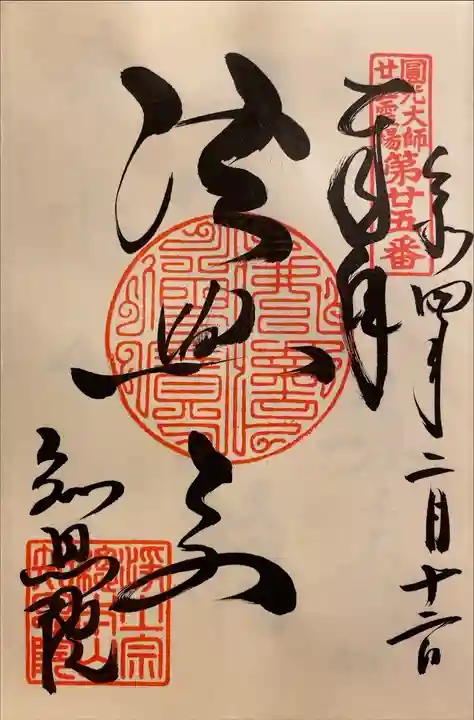 圓光大師
廿五霊場
第廿五番
奉拝
令四年二月十二日
法然上人
知恩院
浄土宗
總本山
知恩院